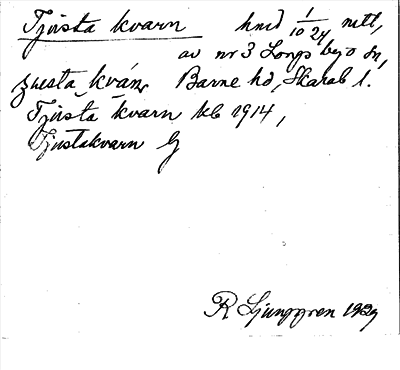 Tjusta kvarn hmd 1/10 24 mtl,
av nr 3 Longs bys o sn,
zusta kván, Barne hd, Skarab l.
Tjusta kvarn kb 1914,
Tjustakvarn G
R Ljunggren 1929